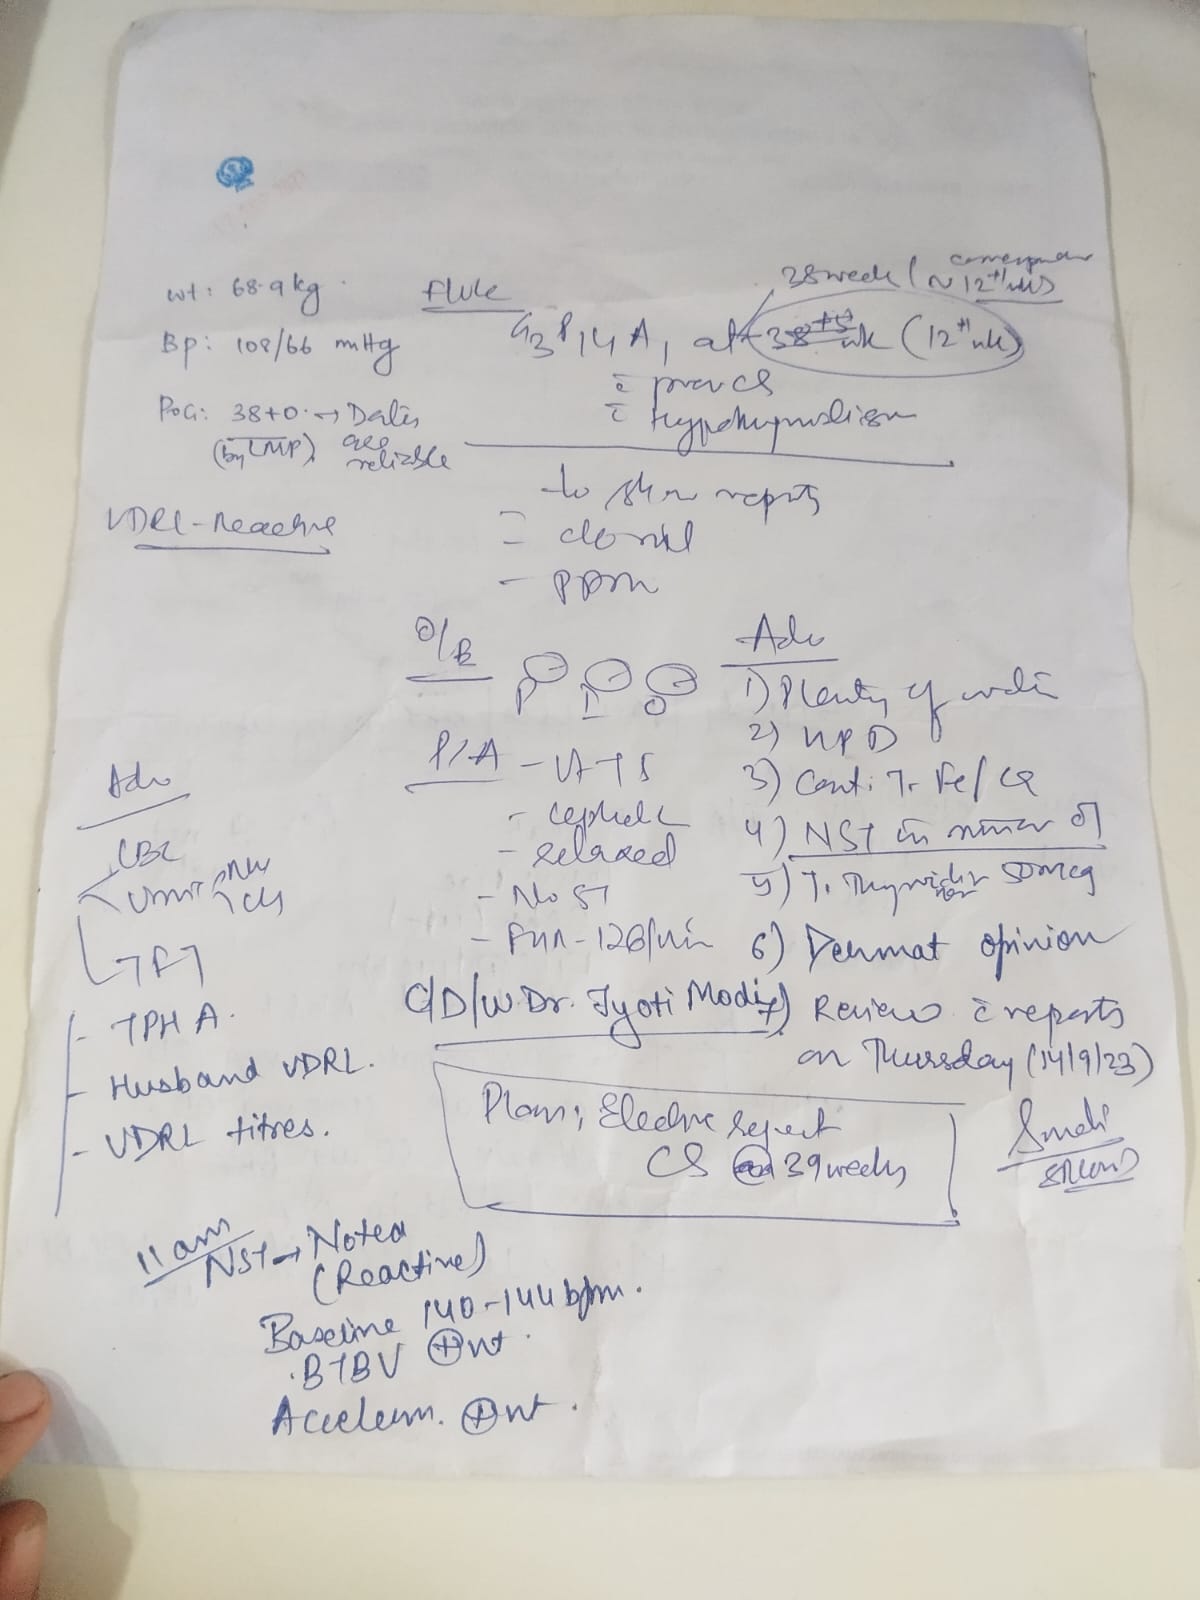 38 week (corresponds
~ 12th wks)
wt: 68.9 kg
G3P1L1A1 at 38+5 wk (12th wk)
Bp: 108/66 mmHg
c̄ prev CS
c̄ Hypothyroidism
POG: 38+0 → Dates
(by LMP) are
reliable
to show reports
VDRL - Reactive
O/E
P I O
P/A - UTTS
- cephalic
- relaxed
- No ST
- FHR - 126/min
Adv
1) Plenty of
3) Cont. T. Fe/Ca
4) NST
5) T. 50mcg
6) Dermat opinion
7) Review c̄ reports
on Thursday (14/9/23)
C/D/W Dr. Jyoti Modi
Adv
CBC
Urine
TFT
- TPHA.
- Husband VDRL.
- VDRL titres.
Plan; Elective repeat
CS @ 39 weeks
11 am
NST → Noted
(Reactive)
Baseline 140-144 bpm.
. BTBV ⊕nt .
Acceleran. ⊕nt .